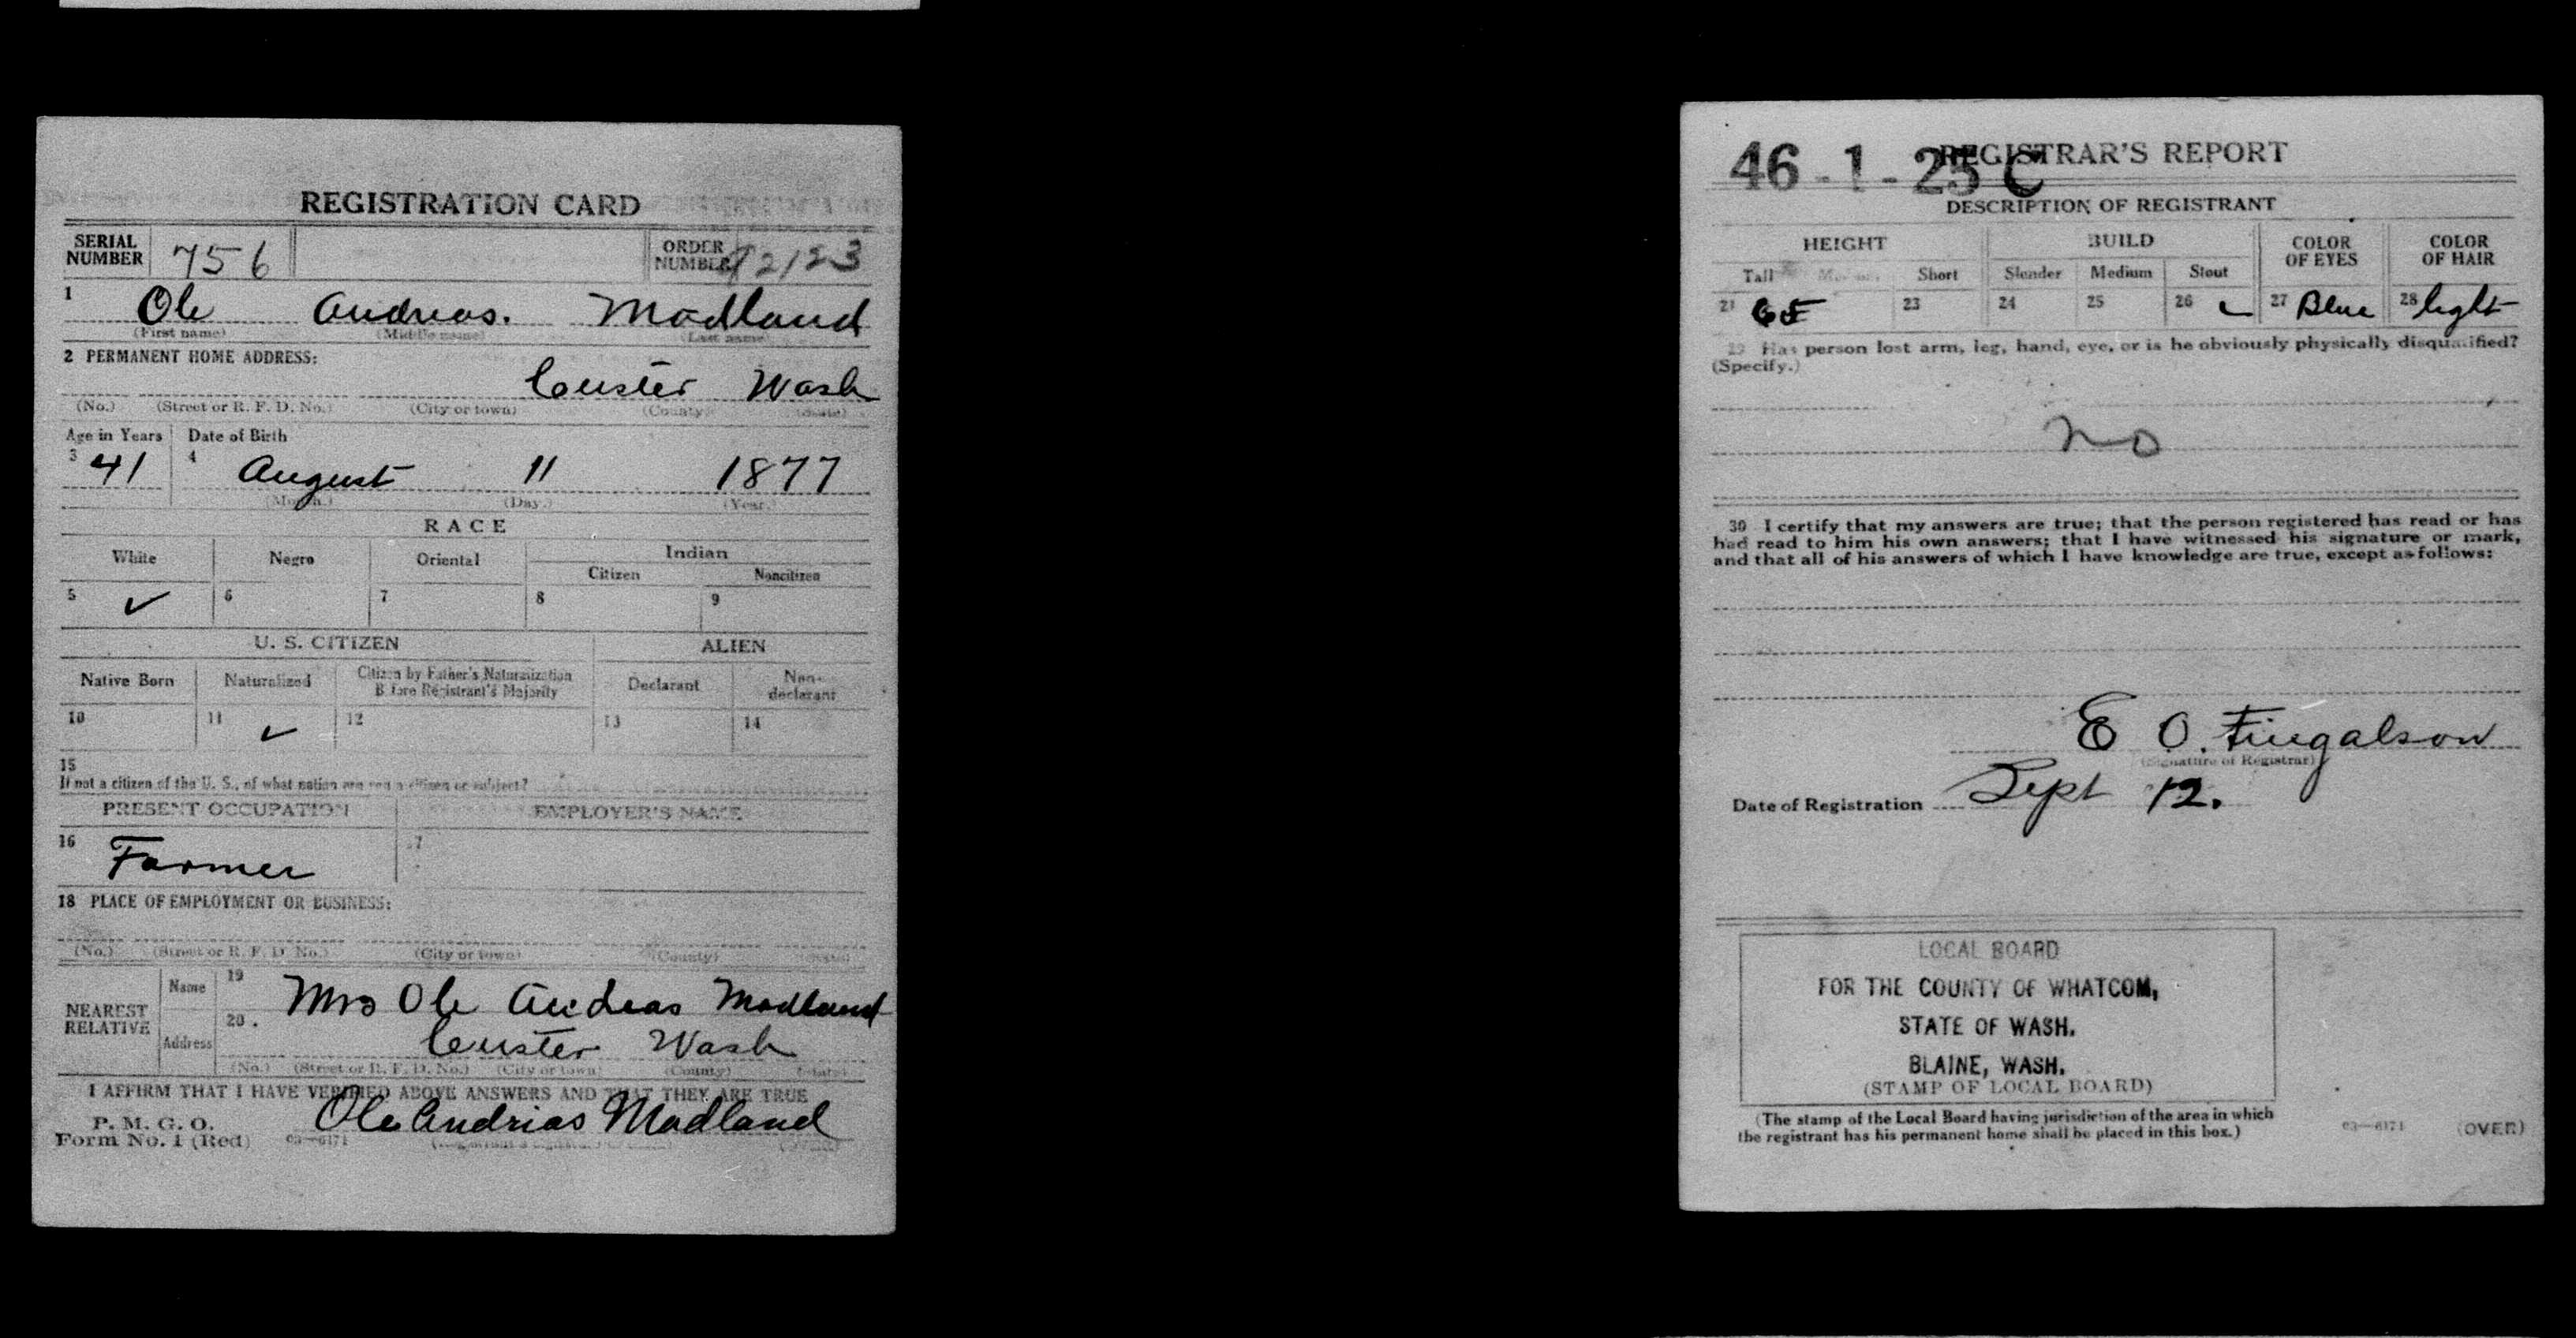 REGISTRATION CARD
SERIAL NUMBER 756 ORDER NUMBER
1 Ole Andreas. Modland
(First name) (Middle name) (Last name)
2 PERMANENT HOME ADDRESS:
Custer Wash
(No.) (Street or R. F. D. No.) (City or town) (County) (State)
Age in Years Date of Birth
3 41 4 August 11 1877
(Month.) (Day.) (Year.)
RACE
White Negro Oriental Indian
Citizen Noncitizen
5 ✓ 6 7 8 9
U. S. CITIZEN ALIEN
Native Born Naturalized Citizen by Father's Naturalization Before Registrant's Majority Declarant Non-declarant
10 11 ✓ 12 13 14
15
If not a citizen of the U. S., of what nation are you a citizen or subject?
PRESENT OCCUPATION EMPLOYER'S NAME
16 Farmer 17
18 PLACE OF EMPLOYMENT OR BUSINESS:
(No.) (Street or R. F. D. No.) (City or town) (County) (State)
NEAREST RELATIVE Name 19 Mrs Ole Andreas Modland
Address 20 Custer Wash
(No.) (Street or R. F. D. No.) (City or town) (County) (State)
I AFFIRM THAT I HAVE VERIFIED ABOVE ANSWERS AND THAT THEY ARE TRUE
P. M. G. O.
Form No. 1 (Red) 03—6171 Ole Andrias Modland
REGISTRAR'S REPORT
46-1-25 C
DESCRIPTION OF REGISTRANT
HEIGHT BUILD COLOR OF EYES COLOR OF HAIR
Tall Medium Short Slender Medium Stout
21 23 24 25 26 ✓ 27 Blue 28 light
29 Has person lost arm, leg, hand, eye, or is he obviously physically disqualified?
(Specify.)
no
30 I certify that my answers are true; that the person registered has read or has
had read to him his own answers; that I have witnessed his signature or mark,
and that all of his answers of which I have knowledge are true, except as follows:
E O. Fingalson
(Signature of Registrar)
Date of Registration Sept 12.
LOCAL BOARD
FOR THE COUNTY OF WHATCOM,
STATE OF WASH.
BLAINE, WASH.
(STAMP OF LOCAL BOARD)
(The stamp of the Local Board having jurisdiction of the area in which
the registrant has his permanent home shall be placed in this box.)
03—6171 (OVER)